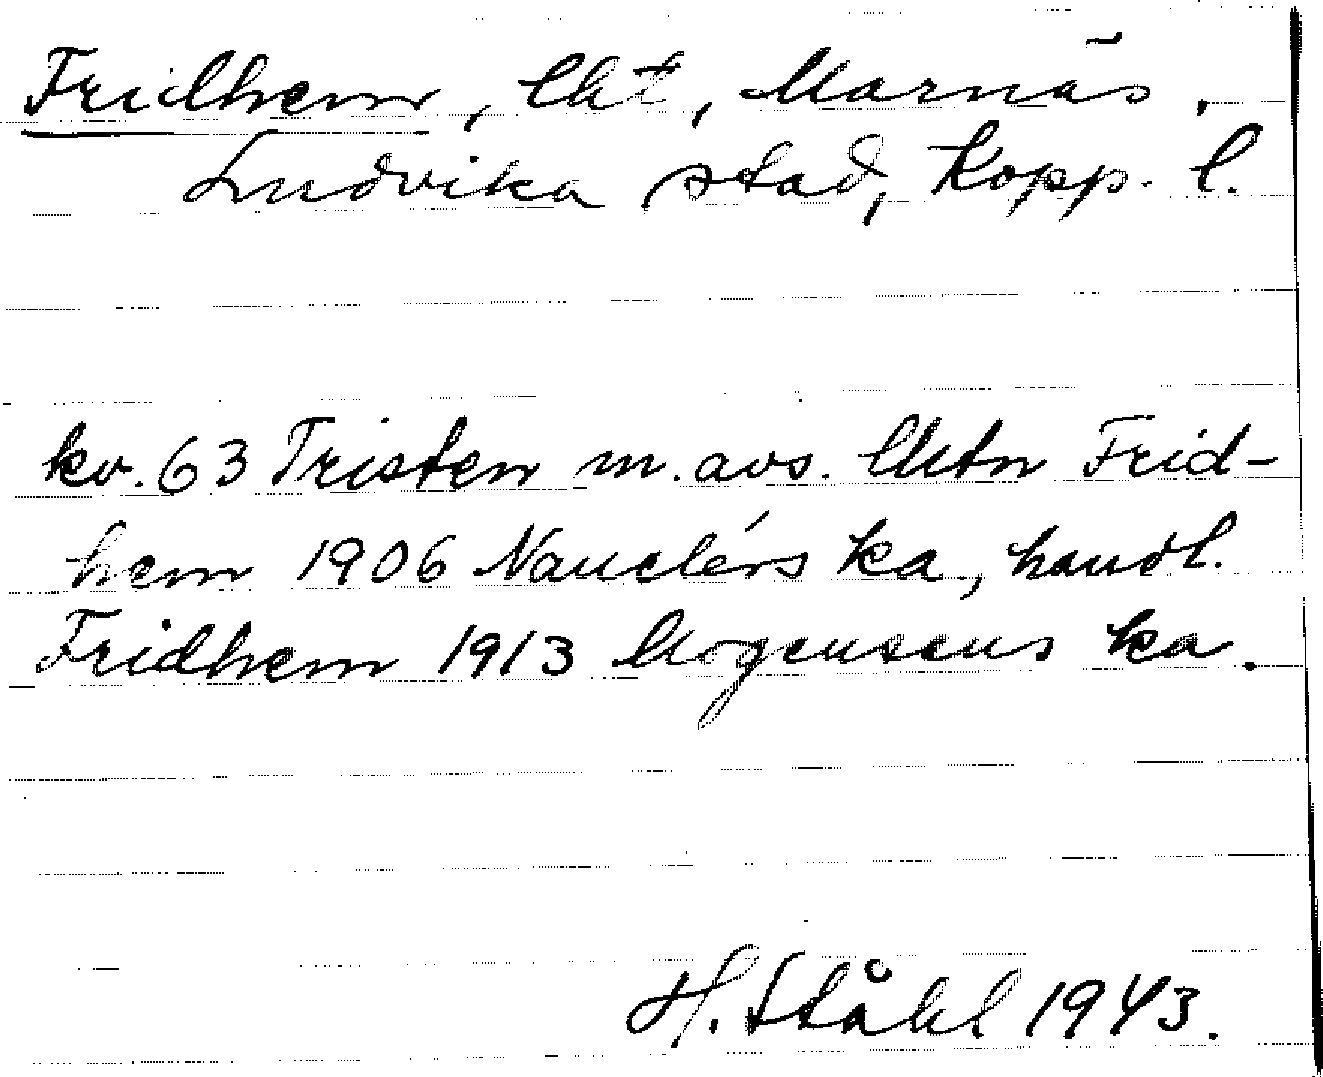 Fridhem, lht, Marnäs.
Ludvika stad, Kopp. l.
kv. 63 Tristen m. avs. lhtn Frid-
hem 1906 Nauclérs ka, handl.
Fridhem 1913 Mogensens ka.
H. Ståhl 1943.